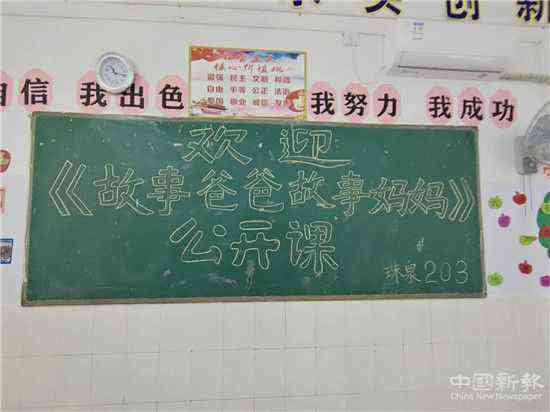 创新
核心价值观
富强 民主 文明 和谐
自由 平等 公正 法治
爱国 敬业 诚信 友善
自信 我出色 我努力 我成功
欢迎
《故事爸爸故事妈妈》
公开课
珠泉203
中國新報
China New Newspaper